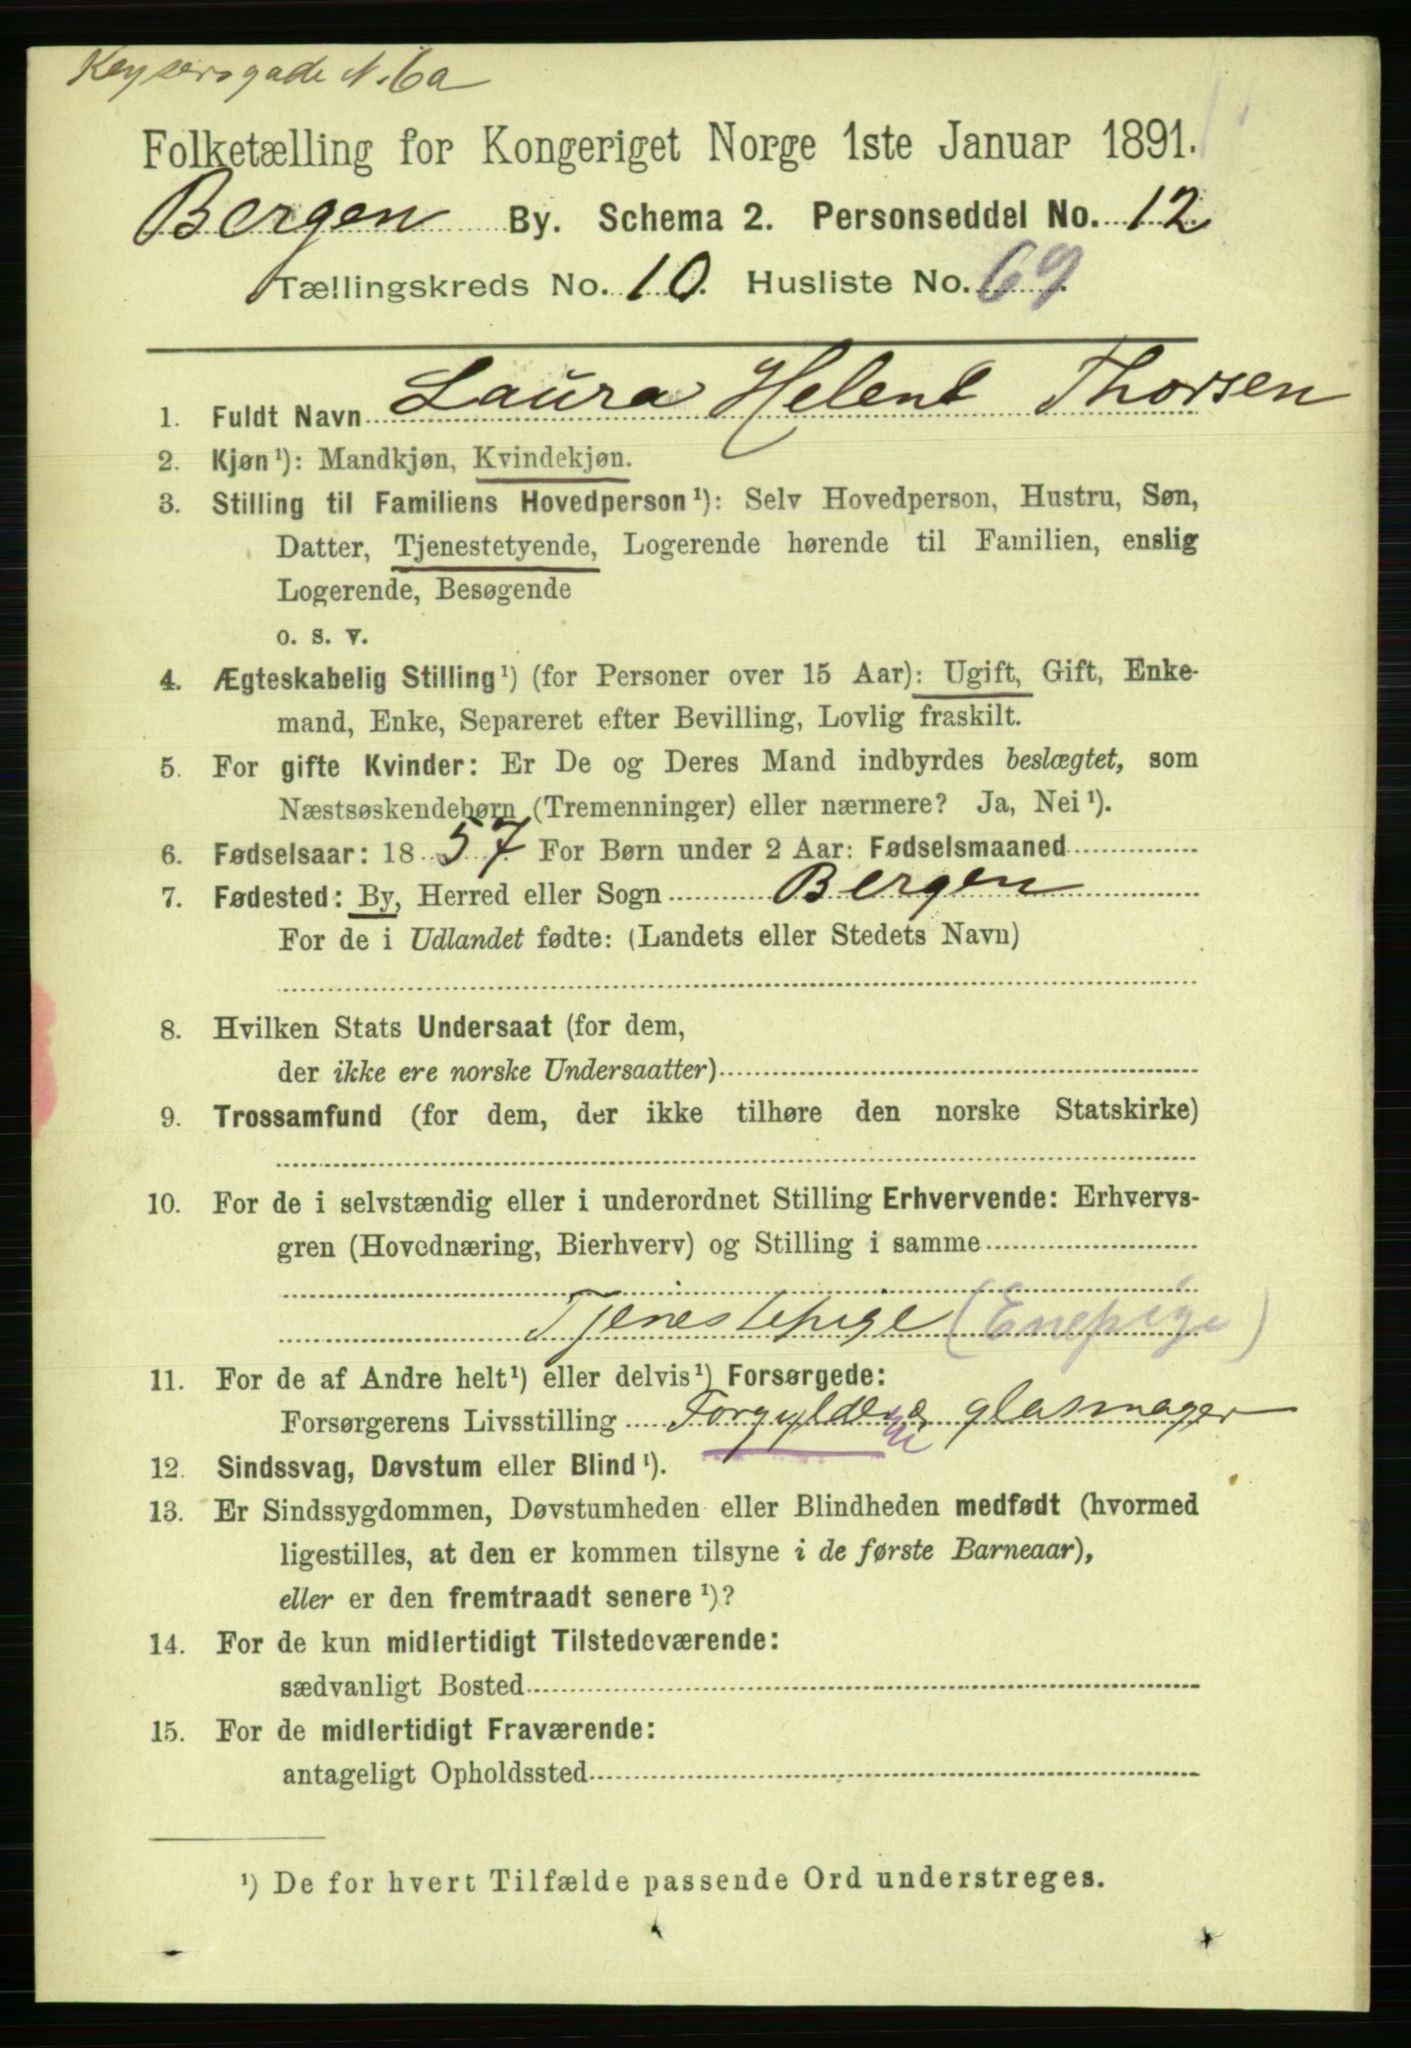 Keysersgade N. 6a
Folketælling for Kongeriget Norge 1ste Januar 1891.
Bergen By. Schema 2. Personseddel No. 12
Tællingskreds No. 10. Husliste No. 69.
1. Fuldt Navn Laura Helene Thorsen
2. Kjøn¹): Mandkjøn, Kvindekjøn.
3. Stilling til Familiens Hovedperson¹): Selv Hovedperson, Hustru, Søn,
Datter, Tjenestetyende, Logerende hørende til Familien, enslig
Logerende, Besøgende
o. s. v.
4. Ægteskabelig Stilling¹) (for Personer over 15 Aar): Ugift, Gift, Enke-
mand, Enke, Separeret efter Bevilling, Lovlig fraskilt.
5. For gifte Kvinder: Er De og Deres Mand indbyrdes beslægtet, som
Næstsøskendebørn (Tremenninger) eller nærmere? Ja, Nei¹).
6. Fødselsaar: 1857. For Børn under 2 Aar: Fødselsmaaned
7. Fødested: By, Herred eller Sogn Bergen
For de i Udlandet fødte: (Landets eller Stedets Navn)
8. Hvilken Stats Undersaat (for dem,
der ikke ere norske Undersaatter)
9. Trossamfund (for dem, der ikke tilhøre den norske Statskirke)
10. For de i selvstændig eller i underordnet Stilling Erhvervende: Erhvervs-
gren (Hovednæring, Bierhverv) og Stilling i samme
Tjenestepige (Enepige)
11. For de af Andre helt¹) eller delvis¹) Forsørgede:
Forsørgerens Livsstilling glasmager
12. Sindssvag, Døvstum eller Blind¹).
13. Er Sindssygdommen, Døvstumheden eller Blindheden medfødt (hvormed
ligestilles, at den er kommen tilsyne i de første Barneaar),
eller er den fremtraadt senere¹)?
14. For de kun midlertidigt Tilstedeværende:
sædvanligt Bosted
15. For de midlertidigt Fraværende:
antageligt Opholdssted
¹) De for hvert Tilfælde passende Ord understreges.